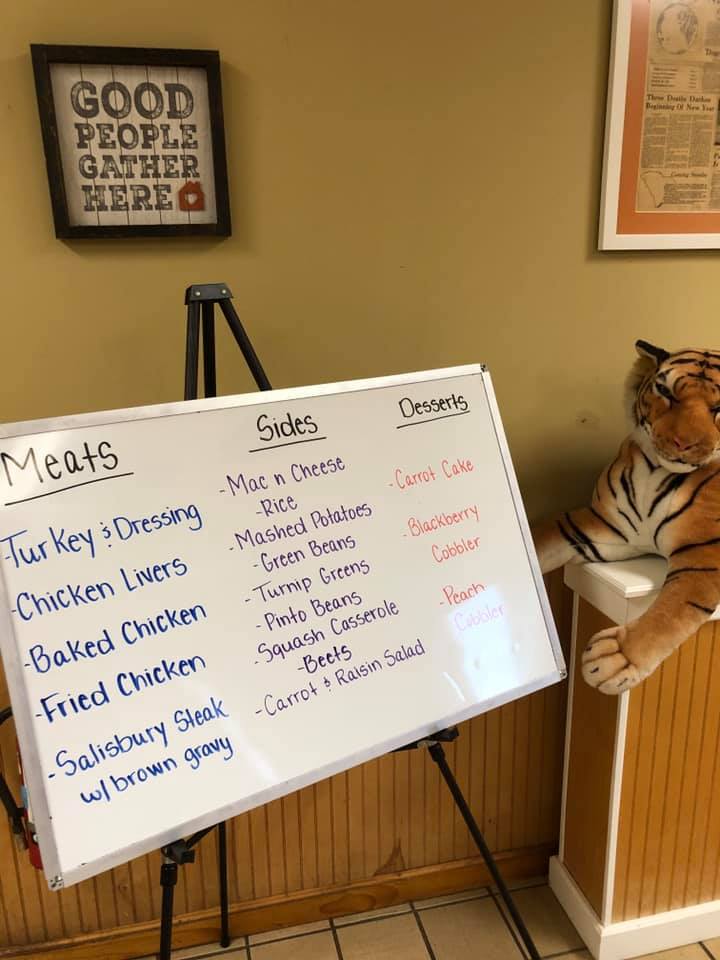 GOOD
PEOPLE
GATHER
HERE
Three Deaths Darken
Beginning Of New Year
Meats
-Turkey & Dressing
-Chicken Livers
-Baked Chicken
-Fried Chicken
-Salisbury Steak
w/ brown gravy
Sides
-Mac n Cheese
-Rice
-Mashed Potatoes
-Green Beans
-Turnip Greens
-Pinto Beans
-Squash Casserole
-Beets
-Carrot & Raisin Salad
Desserts
-Carrot Cake
-Blackberry
Cobbler
-Peach
Cobbler